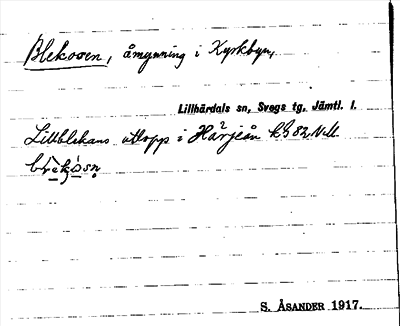 Blekosen, åmynning i Kyrkbyn,
Lillhärdals sn, Svegs tg, Jämtl. l.
Lillblekans utlopp i Härjeån
S. ÅSANDER 1917.